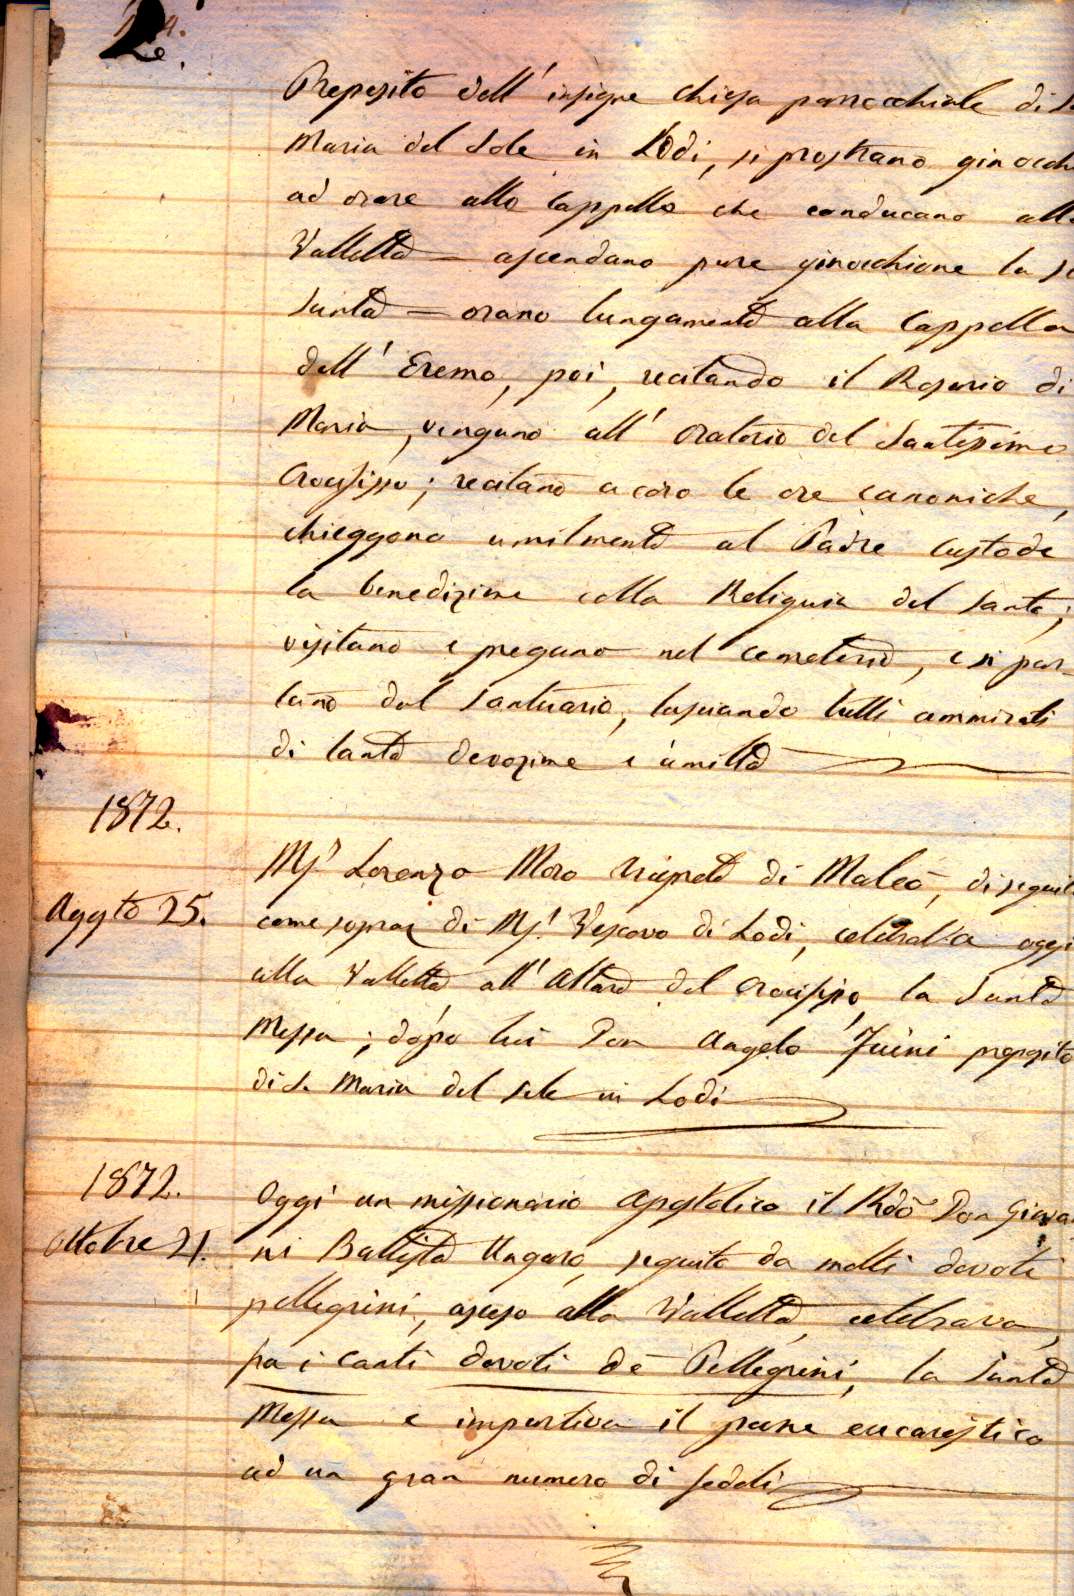 2.
Preposito dell' insigne chiesa parrocchiale di S.
Maria del Sole in Lodi, si prostrano ginocch
ad orare alle Cappelle che conducano alla
Valletta — ascendano pure ginocchione la s
Santa — orano lungamente alla Cappella
dell' Eremo, poi, recitando il Rosario di
Maria, vengano all' Oratorio del Santissimo
Crocifisso; recitano a coro le ore canoniche,
chieggono umilmente al Padre Custode
la benedizione colla Reliquia del Santo;
visitano e pregano nel cemeterio, e si par-
tano dal Santuario, lasciando tutti ammirati
di tanta devozione e umiltà
1872.
Agosto 25.
Mg.r Lorenzo Moro Vicepreto di Maleo, di seguit
come sopra di Mg.r Vescovo di Lodi, celebrava oggi
alla Valletta all' Altare del Crocifisso, la Santa
Messa; dopo lui Don Angelo preposito
di S. Maria del Sole in Lodi
1872.
Ottobre 21.
Oggi un missionario Apostolico il Rdo Don Giovan
ni Battista Ungaro, seguito da molti devoti
pellegrini, asceso alla Valletta, celebrava,
fra i canti devoti de Pellegrini, la Santa
Messa e impartiva il pane eucaristico
ad un gran numero di fedeli